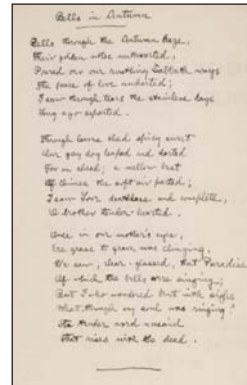 Bells in Autumn
Bells through the Autumn haze,
Their golden notes
Poured o'er our Sabbath ways
The peace of love
I saw through tears the stainless days
Long ago departed.
Through leaves shed spicy sweet
Our gay dog leaped and darted
Far on ahead; a mellow beat
Of chimes the soft air parted;
I saw Love deathless and complete,
O brother tender hearted.
Once in our mother's eyes,
Ere grass to grow was clinging,
We saw, clear-glassed, that Paradise
Of which the bells were singing;
But I who wondered but with sighs
What through my soul was ringing
The tender word
That rises with the dead.